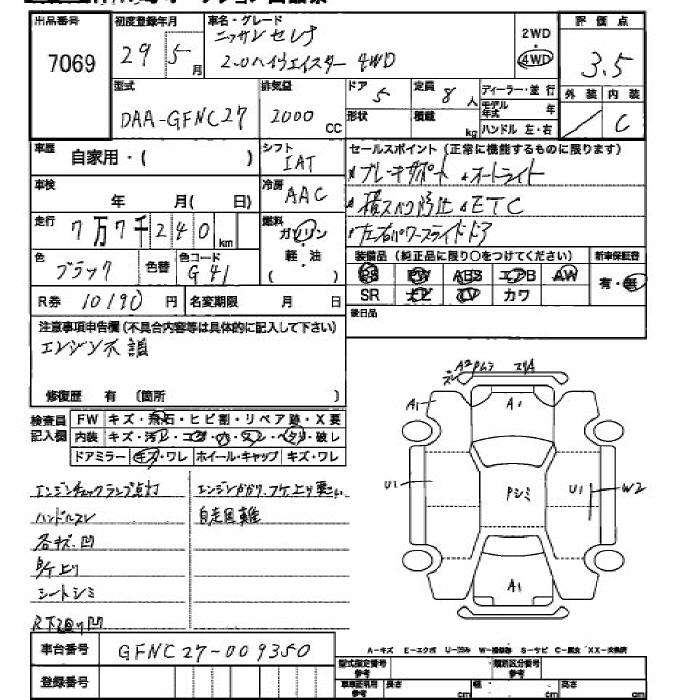 出品番号
7069
初度登録年月
29 5月
車名・グレード
ニッサン セレナ
2.0ハイウェイスター 4WD
2WD
・
4WD
評価点
3.5
外装 内装
C
型式
DAA-GFNC27
排気量
2000 CC
ドア
5
定員
8人
形状
積載
kg
ディーラー・並行
モデル年式 年
ハンドル 左・右
車歴
自家用・( )
シフト
IAT
車検
年 月( 日)
冷房
AAC
走行
7万7千240 km
燃料
ガソリン
・
軽・油
( )
色
ブラック
色替
色コード
G41
R券 10190円
名変期限 月 日
セールスポイント(正常に機能するものに限ります)
・ブレーキサポート ・オートライト
・横スベリ防止 ・ETC
・左右パワースライドドア
装備品(純正品に限り○をつけてください)
PS PW ABS エアB AW
SR ナビ TV カワ
新車保証書
有・無
後日品
注意事項申告欄(不具合内容等は具体的に記入して下さい)
エンジン不調
修復歴 有 (箇所 )
検査員記入欄
FW キズ・飛石・ヒビ割・リペア跡・X要
内装 キズ・汚レ・コゲ・穴・スレ・ヘタリ・破レ
ドアミラー キズ・ワレ ホイール・キャップ キズ・ワレ
エンジンチェックランプ点灯
ハンドルスレ
各キズ.凹
シートシミ
エンジンかかり、フケ上り悪い、
自走困難
A2
A1
A1
U1
Pシミ
U1
W2
A1
A-キズ E-エクボ U-凹み W-補修跡 S-サビ C-腐食 XX-交換済
車台番号
GFNC27-009350
登録番号
型式指定番号 参考
類別区分番号 参考
長さ cm
幅 cm
高さ cm